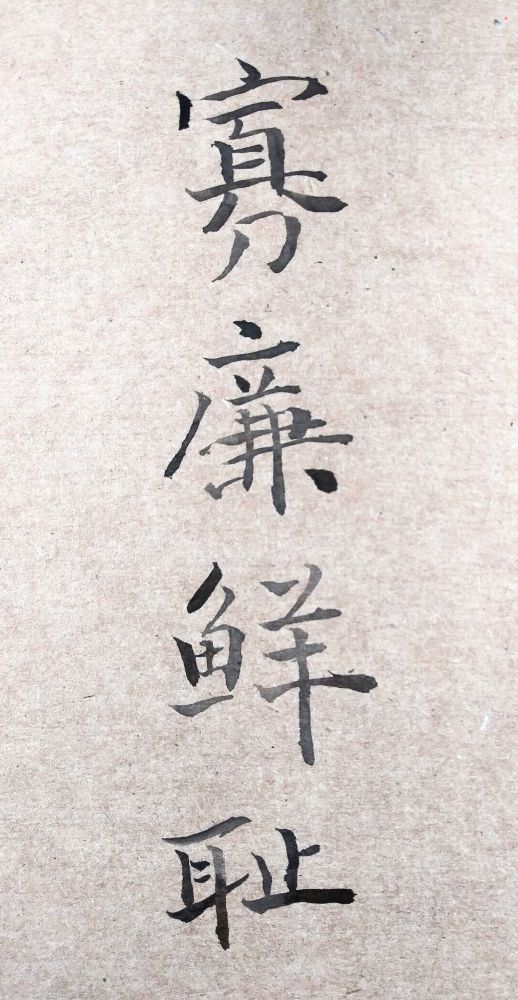 寡廉鲜耻